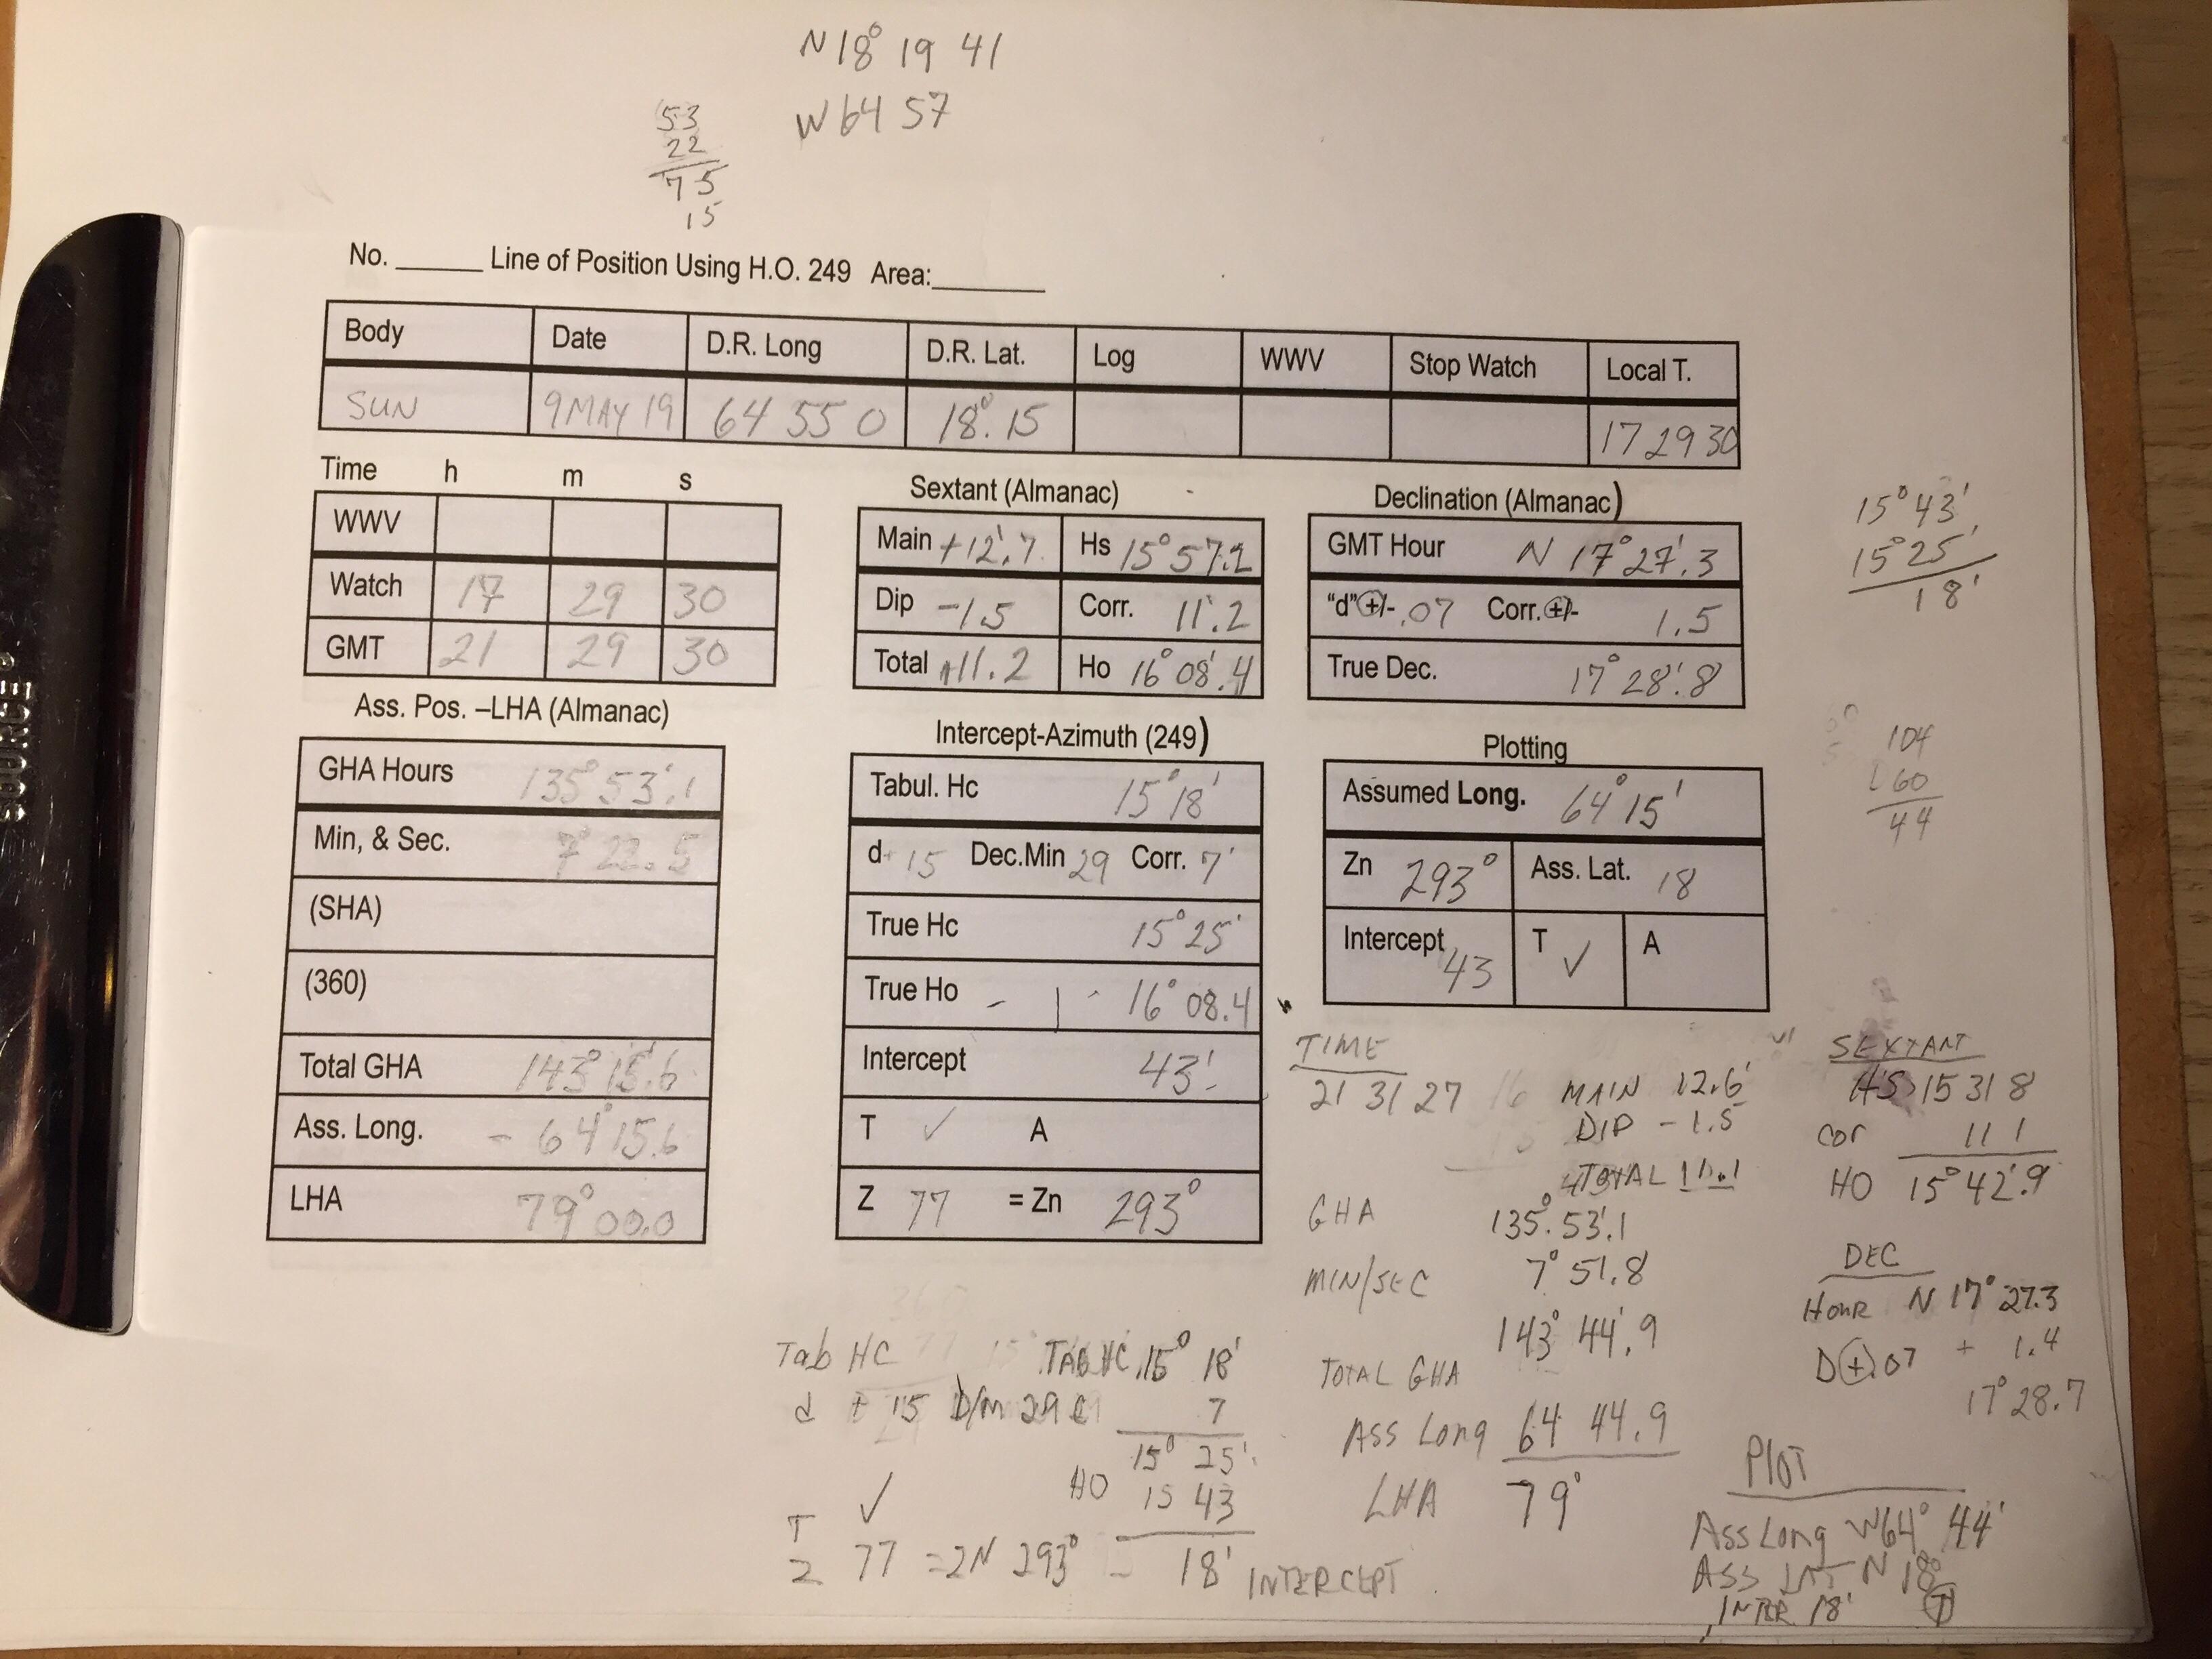 N 18° 19 41
W 64 57
53
22
75
15
No. ______ Line of Position Using H.O. 249 Area:________
Body Date D.R. Long D.R. Lat. Log WWV Stop Watch Local T.
SUN 9MAY 19 64 55 0 18° 15 17 29 30
Time h m s
WWV
Watch 17 29 30
GMT 21 29 30
Sextant (Almanac)
Main +12'.7 Hs 15° 57.2
Dip -1.5 Corr. 11'.2
Total +11.2 Ho 16° 08'.4
Declination (Almanac)
GMT Hour N 17° 27'.3
"d"+/- .07 Corr.+/- 1.5
True Dec. 17° 28'.8
15° 43'
15° 25'
18'
Ass. Pos. –LHA (Almanac)
GHA Hours 135° 53'.1
Min, & Sec. 7° 22.5
(SHA)
(360)
Total GHA 143° 15'.6
Ass. Long. - 64° 15.6
LHA 79° 00.0
Intercept-Azimuth (249)
Tabul. Hc 15° 18'
d+ 15 Dec.Min 29 Corr. 7'
True Hc 15° 25'
True Ho - 16° 08.4
Intercept 43'
T ✓ A
Z 77 = Zn 293°
Plotting
Assumed Long. 64° 15'
Zn 293° Ass. Lat. 18
Intercept 43 T ✓ A
104
60
44
TIME
21 31 27
MAIN 12.6'
DIP - 1.5
TOTAL 11.1
SEXTANT
HS 15 31 8
Cor 11 1
HO 15° 42'.9
GHA 135° 53'.1
MIN/SEC 7° 51.8
143° 44'.9
TOTAL GHA
Ass Long 64 44.9
LHA 79°
DEC
Hour N 17° 27.3
D + .07 + 1.4
17° 28.7
Tab HC TAB HC 15° 18'
d + 15 D/m 29 C 7
15° 25'
HO 15 43
T ✓
Z 77 = ZN 293° 18' INTERCEPT
PLOT
Ass Long W64° 44'
Ass LAT N 18°
INTER 18' T
SOURCE